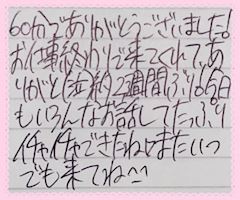 60分でありがとうございました!
お仕事終わりで来てくれて、あ
りがと 約2週間ぶりの今日
もいろんなお話してたっぷり
イチャイチャできたねまたいつ
でも来てね^^